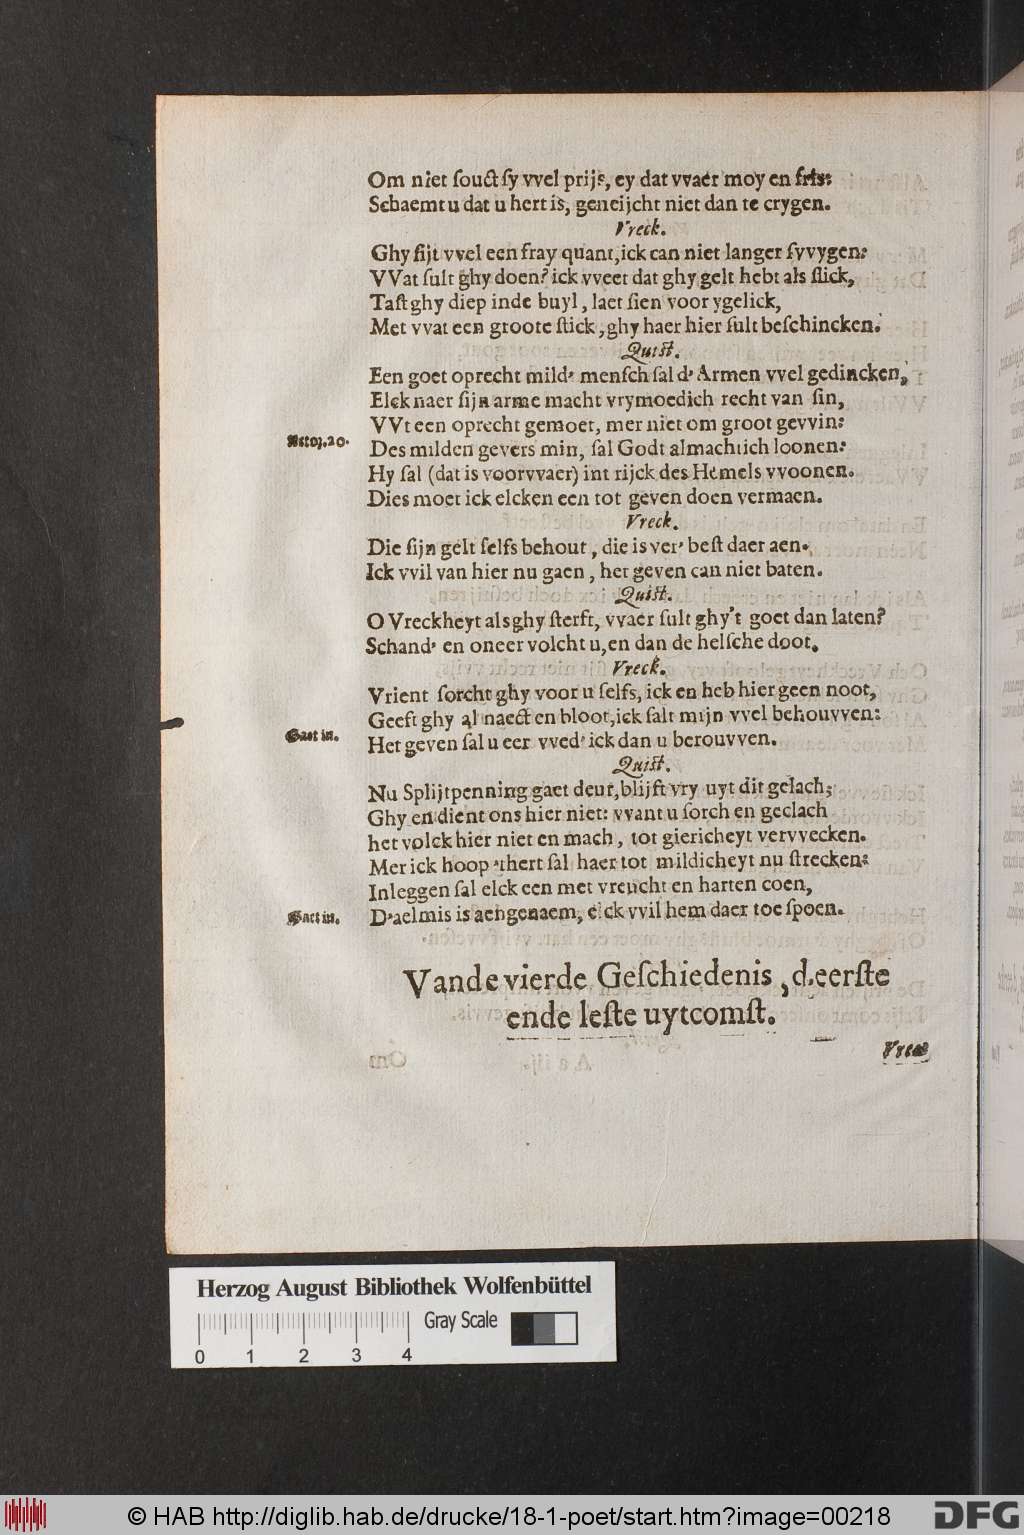 Om niet ſouct ſy vvel prijs, ey dat vvaer moy en fris:
Schaemt u dat u hert is, geneijcht niet dan te crygen.
Vreck.
Ghy ſijt vvel een fray quant, ick can niet langer ſvvygen:
VVat ſult ghy doen? ick vveet dat ghy gelt hebt als ſlick,
Taſt ghy diep inde buyl, laet ſien voor ygelick,
Met vvat een groote ſtick, ghy haer hier ſult beſchincken.
Quist.
Een goet oprecht mild' menſch ſal d'Armen vvel gedincken,
Elck naer ſijn arme macht vrymoedich recht van ſin,
VVt een oprecht gemoet, mer niet om groot gevvin:
Actoꝛ. 20.
Des milden gevers min, ſal Godt almachtich loonen:
Hy ſal (dat is voorvvaer) int rijck des Hemels vvoonen.
Dies moet ick elcken een tot geven doen vermaen.
Vreck.
Die ſijn gelt ſelfs behout, die is ver' beſt daer aen.
Ick vvil van hier nu gaen, het geven can niet baten.
Quist.
O Vreckheyt als ghy ſterft, vvaer ſult ghy't goet dan laten?
Schand' en oneer volcht u, en dan de helſche doot.
Vreck.
Vrient ſorcht ghy voor u ſelfs, ick en heb hier geen noot,
Geeft ghy al naect en bloot, ick ſalt mijn vvel behouvven:
Gaet in.
Het geven ſal u eer vved' ick dan u berouvven.
Quist.
Nu Splijtpenning gaet deur, blijft vry uyt dit gelach;
Ghy en dient ons hier niet: vvant u ſorch en geclach
het volck hier niet en mach, tot giericheyt vervvecken.
Mer ick hoop 'thert ſal haer tot mildicheyt nu ſtrecken:
Inleggen ſal elck een met vreucht en harten coen,
Gaet in.
D'aelmis is aengenaem, elck vvil hem daer toe ſpoen.
Vande vierde Geſchiedenis, d.eerſte
ende leſte uytcomſt.
Vrea
Herzog August Bibliothek Wolfenbüttel
Gray Scale
0 1 2 3 4
© HAB http://diglib.hab.de/drucke/18-1-poet/start.htm?image=00218
DFG